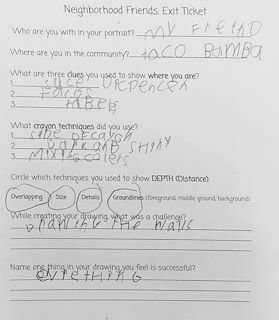 Neighborhood Friends: Exit Ticket
Who are you with in your portrait? MY FrEIND
Where are you in the community? tACO BAMBA
What are three clues you used to show where you are?
1.
2. tacos
3. tABELS
What crayon techniques did you use?
1. SIDE
2. DARK AND SHINY
3. MIXING colers
Circle which techniques you used to show DEPTH (Distance)
Overlapping Size Details Groundlines (foreground, middle ground, background)
While creating your drawing, what was a challenge?
DrawING the WAlls
Name one thing in your drawing you feel is successful?
EVreTHING